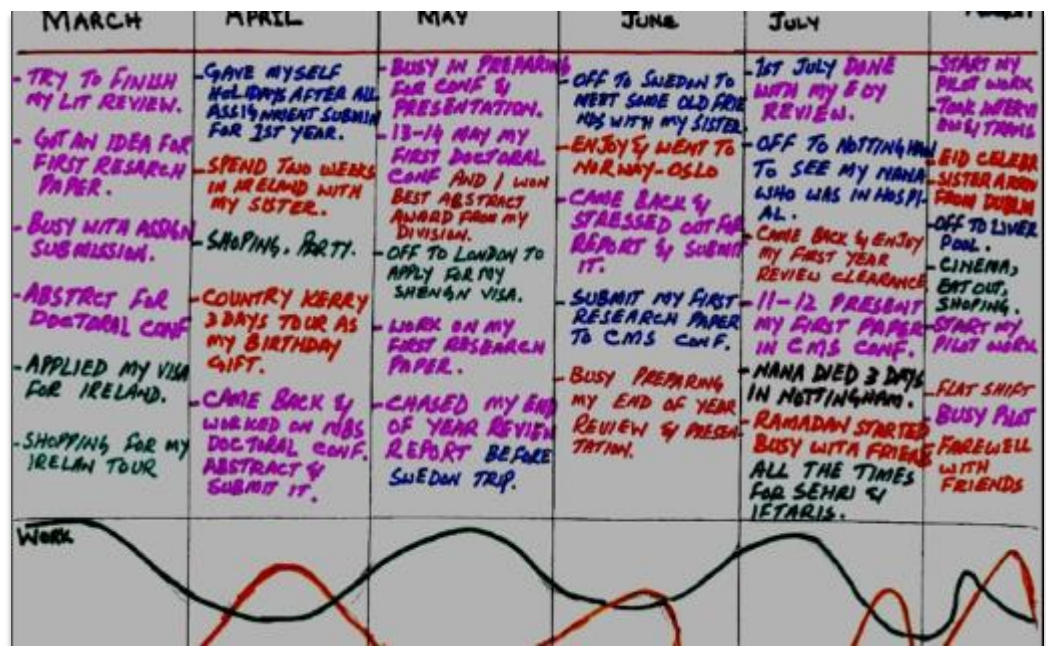 MARCH
- TRY TO FINISH
MY LIT REVIEW.
- GOT AN IDEA FOR
FIRST RESARCH
PAPER.
- BUSY WITH ASSIGN
SUBMISSION.
- ABSTRCT FOR
DOCTORAL CONF
- APPLIED MY VISA
FOR IRELAND.
- SHOPPING FOR MY
IRELAN TOUR
APRIL
- GAVE MYSELF
HOLIDAYS AFTER ALL
ASSIGNMENT SUBMIN
FOR 1ST YEAR.
- SPEND TWO WEEKS
IN IRELAND WITH
MY SISTER.
- SHOPING, PARTY.
- COUNTRY KERRY
3 DAYS TOUR AS
MY BIRTHDAY
GIFT.
- CAME BACK &
WORKED ON MBS
DOCTORAL CONF.
ABSTRACT &
SUBMIT IT.
MAY
- BUSY IN PREPARING
FOR CONF &
PRESENTATION.
- 13-14 MAY MY
FIRST DOCTORAL
CONF AND I WON
BEST ABSTRACT
AWARD FROM MY
DIVISION.
- OFF TO LONDON TO
APPLY FOR MY
SHENGN VISA.
- WORK ON MY
FIRST RESEARCH
PAPER.
- CHASED MY END
OF YEAR REVIEW
REPORT BEFORE
SWEDON TRIP.
JUNE
- OFF TO SWEDON TO
MEET SOME OLD FRIE
NDS WITH MY SISTER
- ENJOY & WENT TO
NORWAY-OSLO
- CAME BACK &
STRESSED OUT FOR
REPORT & SUBMIT
IT.
- SUBMIT MY FIRST
RESEARCH PAPER
TO CMS CONF.
- BUSY PREPARING
MY END OF YEAR
REVIEW & PRESEN
TATION.
JULY
- 1ST JULY DONE
WITH MY EOY
REVIEW.
- OFF TO NOTTINGHAM
TO SEE MY NANA
WHO WAS IN HOSPI-
AL.
- CAME BACK & ENJOY
MY FIRST YEAR
REVIEW CLEARANCE
- 11-12 PRESENT
MY FIRST PAPER
IN CMS CONF.
- NANA DIED 3 DAYS
IN NOTTINGHAM.
- RAMADAN STARTED
BUSY WITH FRIENS
ALL THE TIMES
FOR SEHRI &
IFTARIS.
- START MY
PILOT WORK
- TOOK INTERVI
EWS & TRANS
- EID CELEBR
- SISTER
FROM DUBLIN
- OFF TO LIVER
POOL.
- CINEMA,
EAT OUT,
SHOPING.
- START MY
PILOT WORK
- FLAT SHIFT
- BUSY PILOT
- FAREWELL
WITH
FRIENDS
WORK